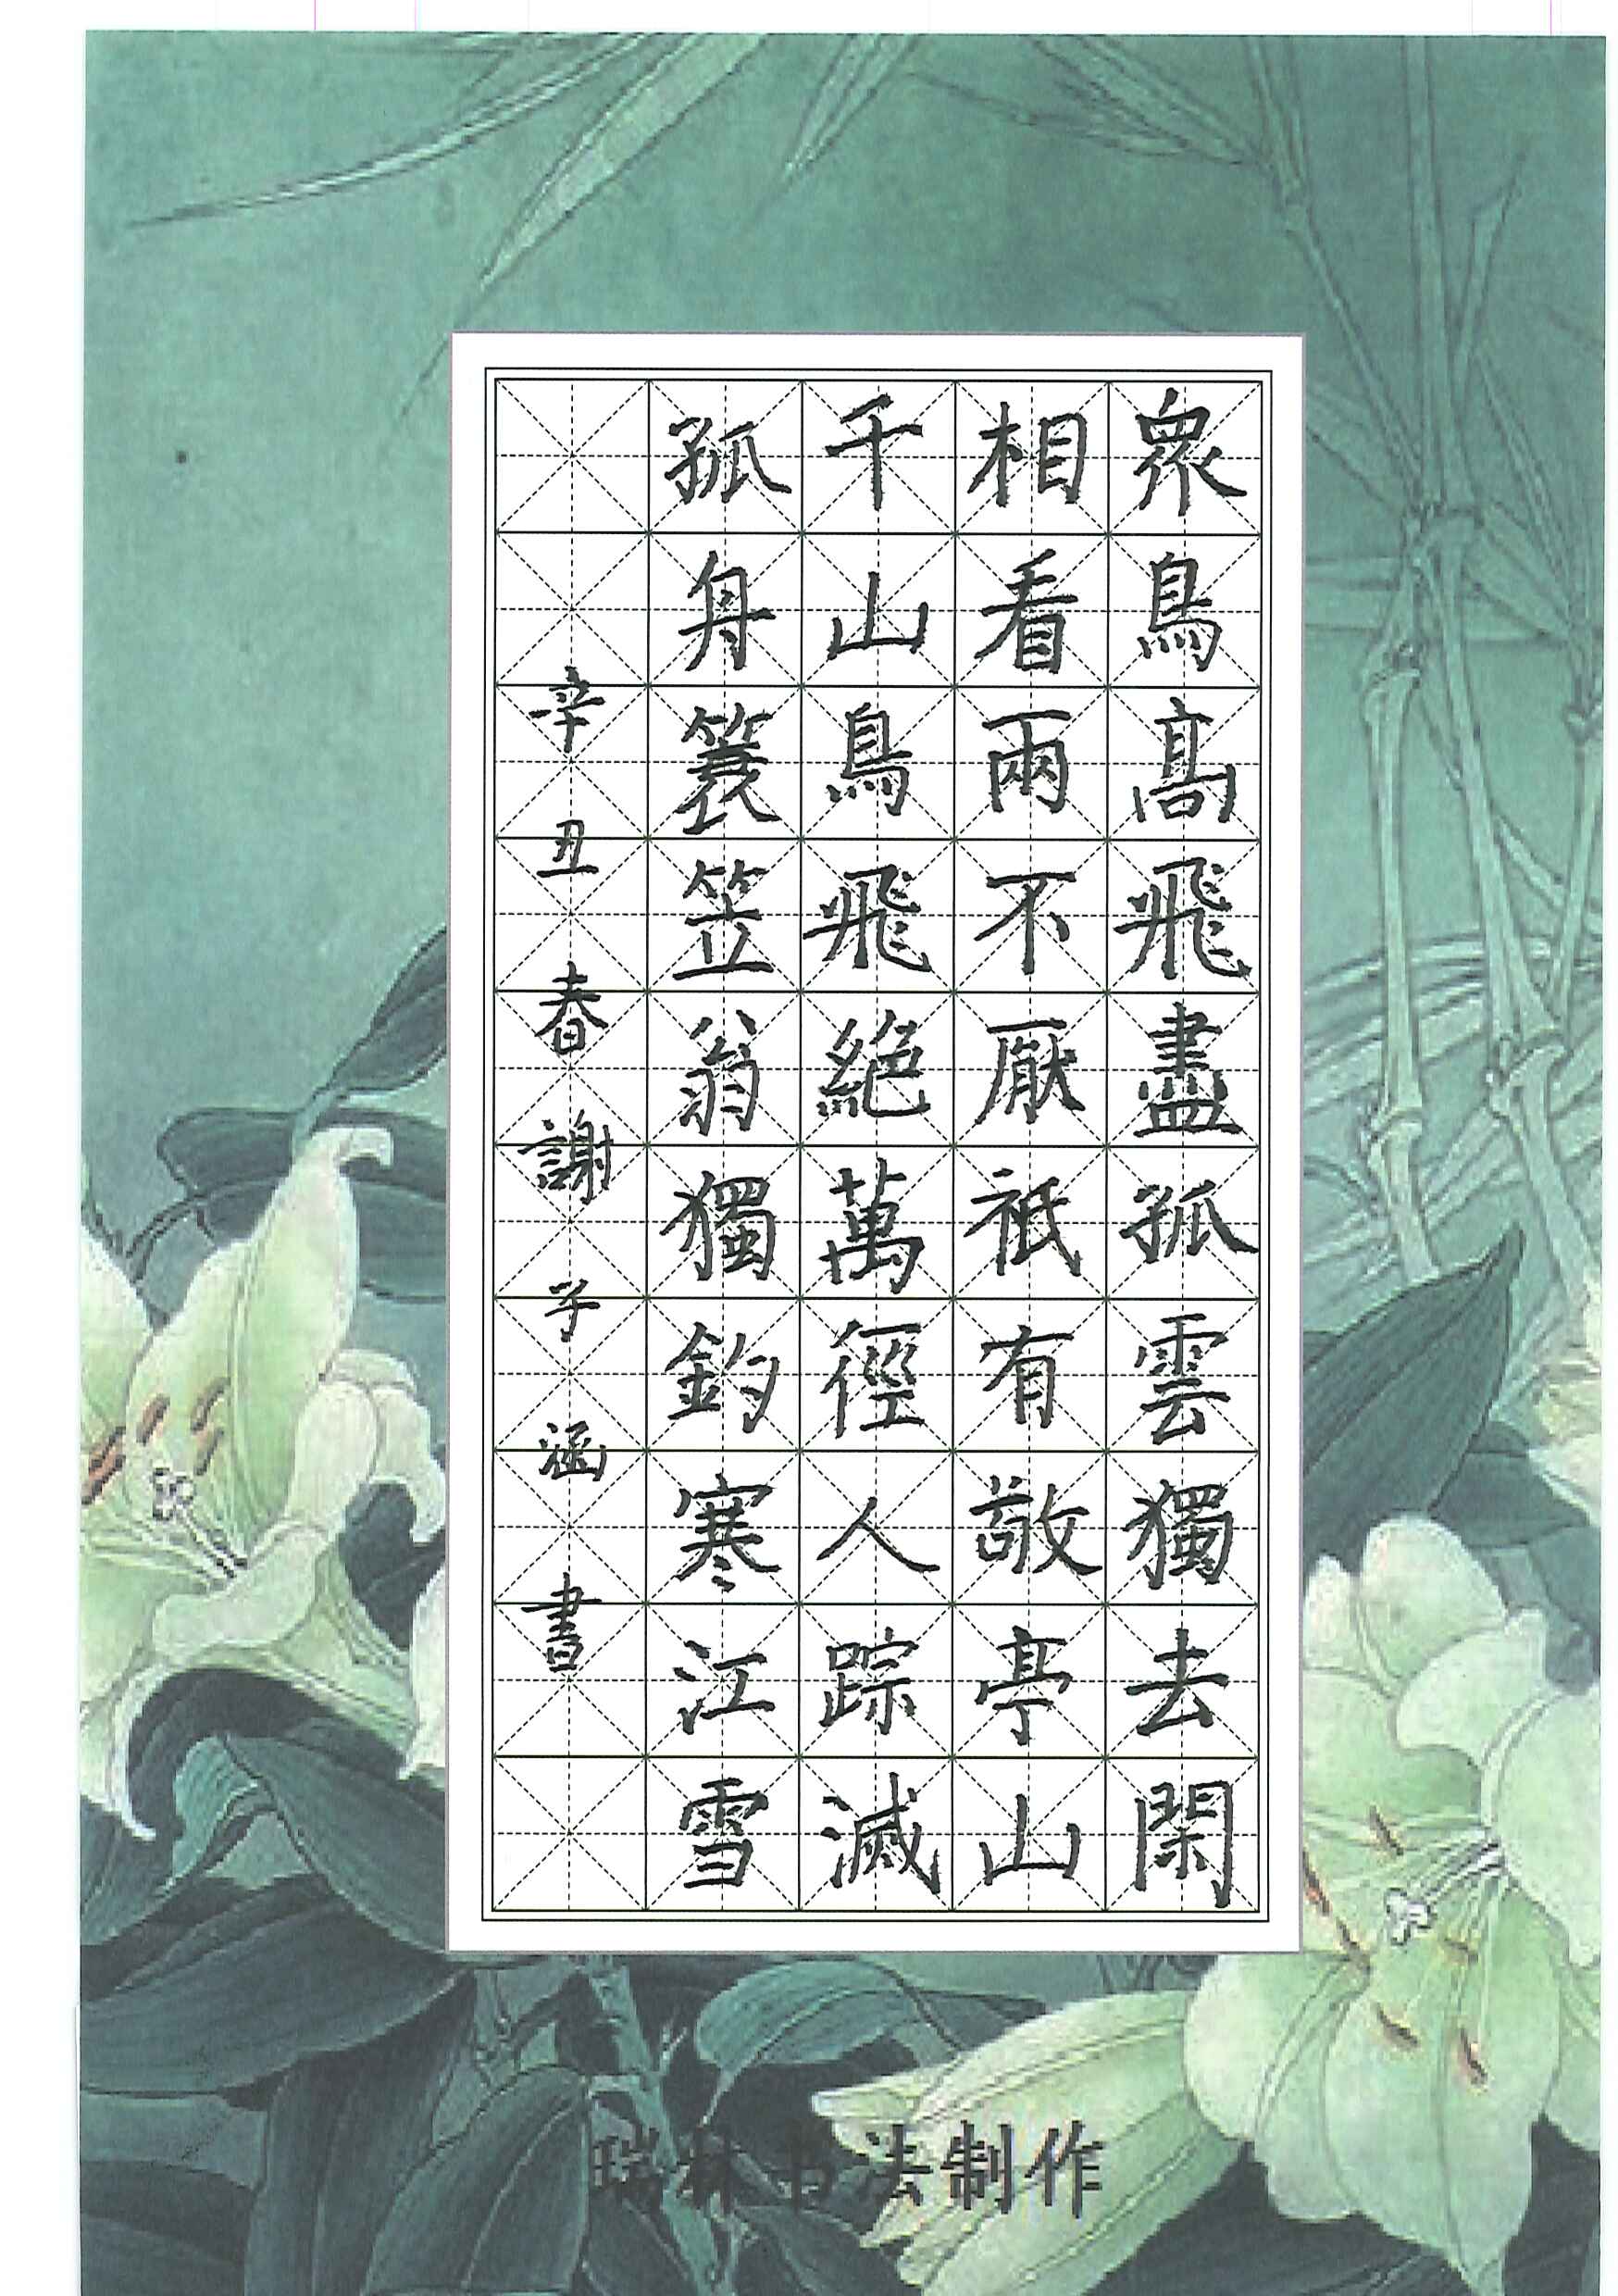 衆鳥高飛盡孤雲獨去閑
相看兩不厭祇有敬亭山
千山鳥飛絶萬徑人踪滅
孤舟簑笠翁獨釣寒江雪
辛丑春謝子涵書
瑞林书法制作